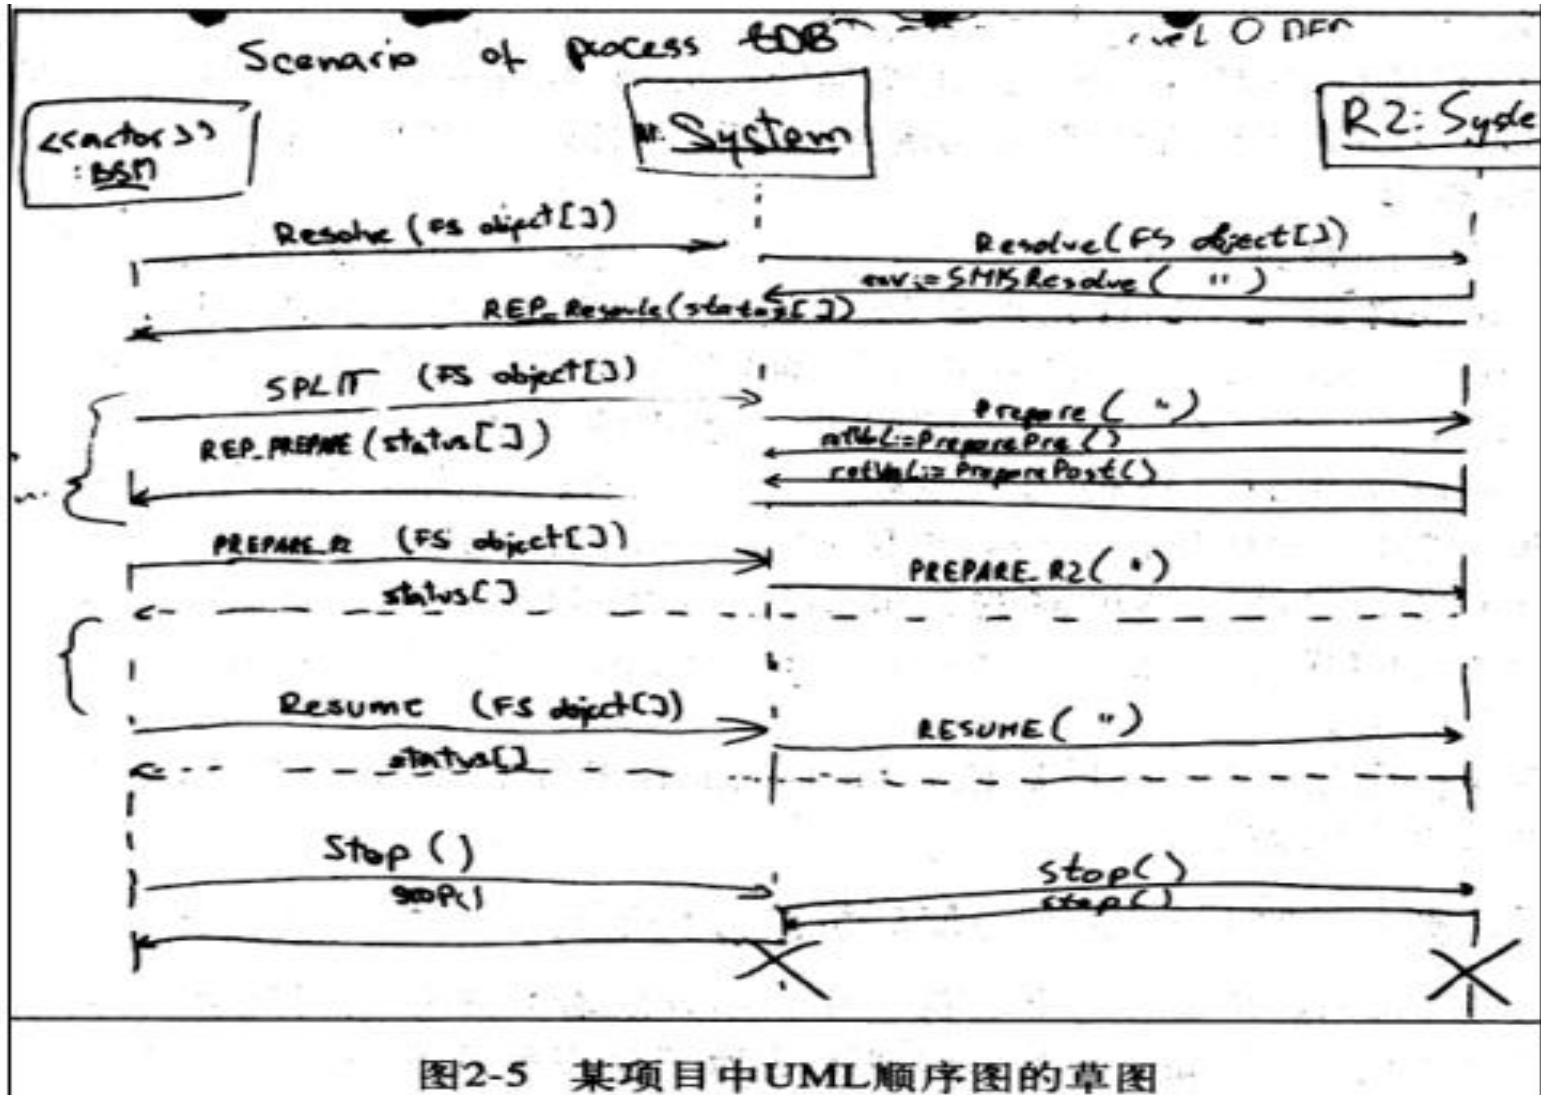 Scenario of process
<<actor>>
: BSM
System
R2: Syste
Resolve (FS object[])
Resolve(FS object[])
SMKSResolve ( " )
REP_Resovle(status[])
SPLIT (FS object[])
Prepare ( " )
REP_PREPARE (status[])
retVal:=PreparePre()
retVal:=PreparePost()
PREPARE_R2 (FS object[])
PREPARE_R2( " )
status[]
Resume (FS object[])
RESUME( " )
status[]
Stop ()
stop()
stop()
stop()
图2-5 某项目中UML顺序图的草图